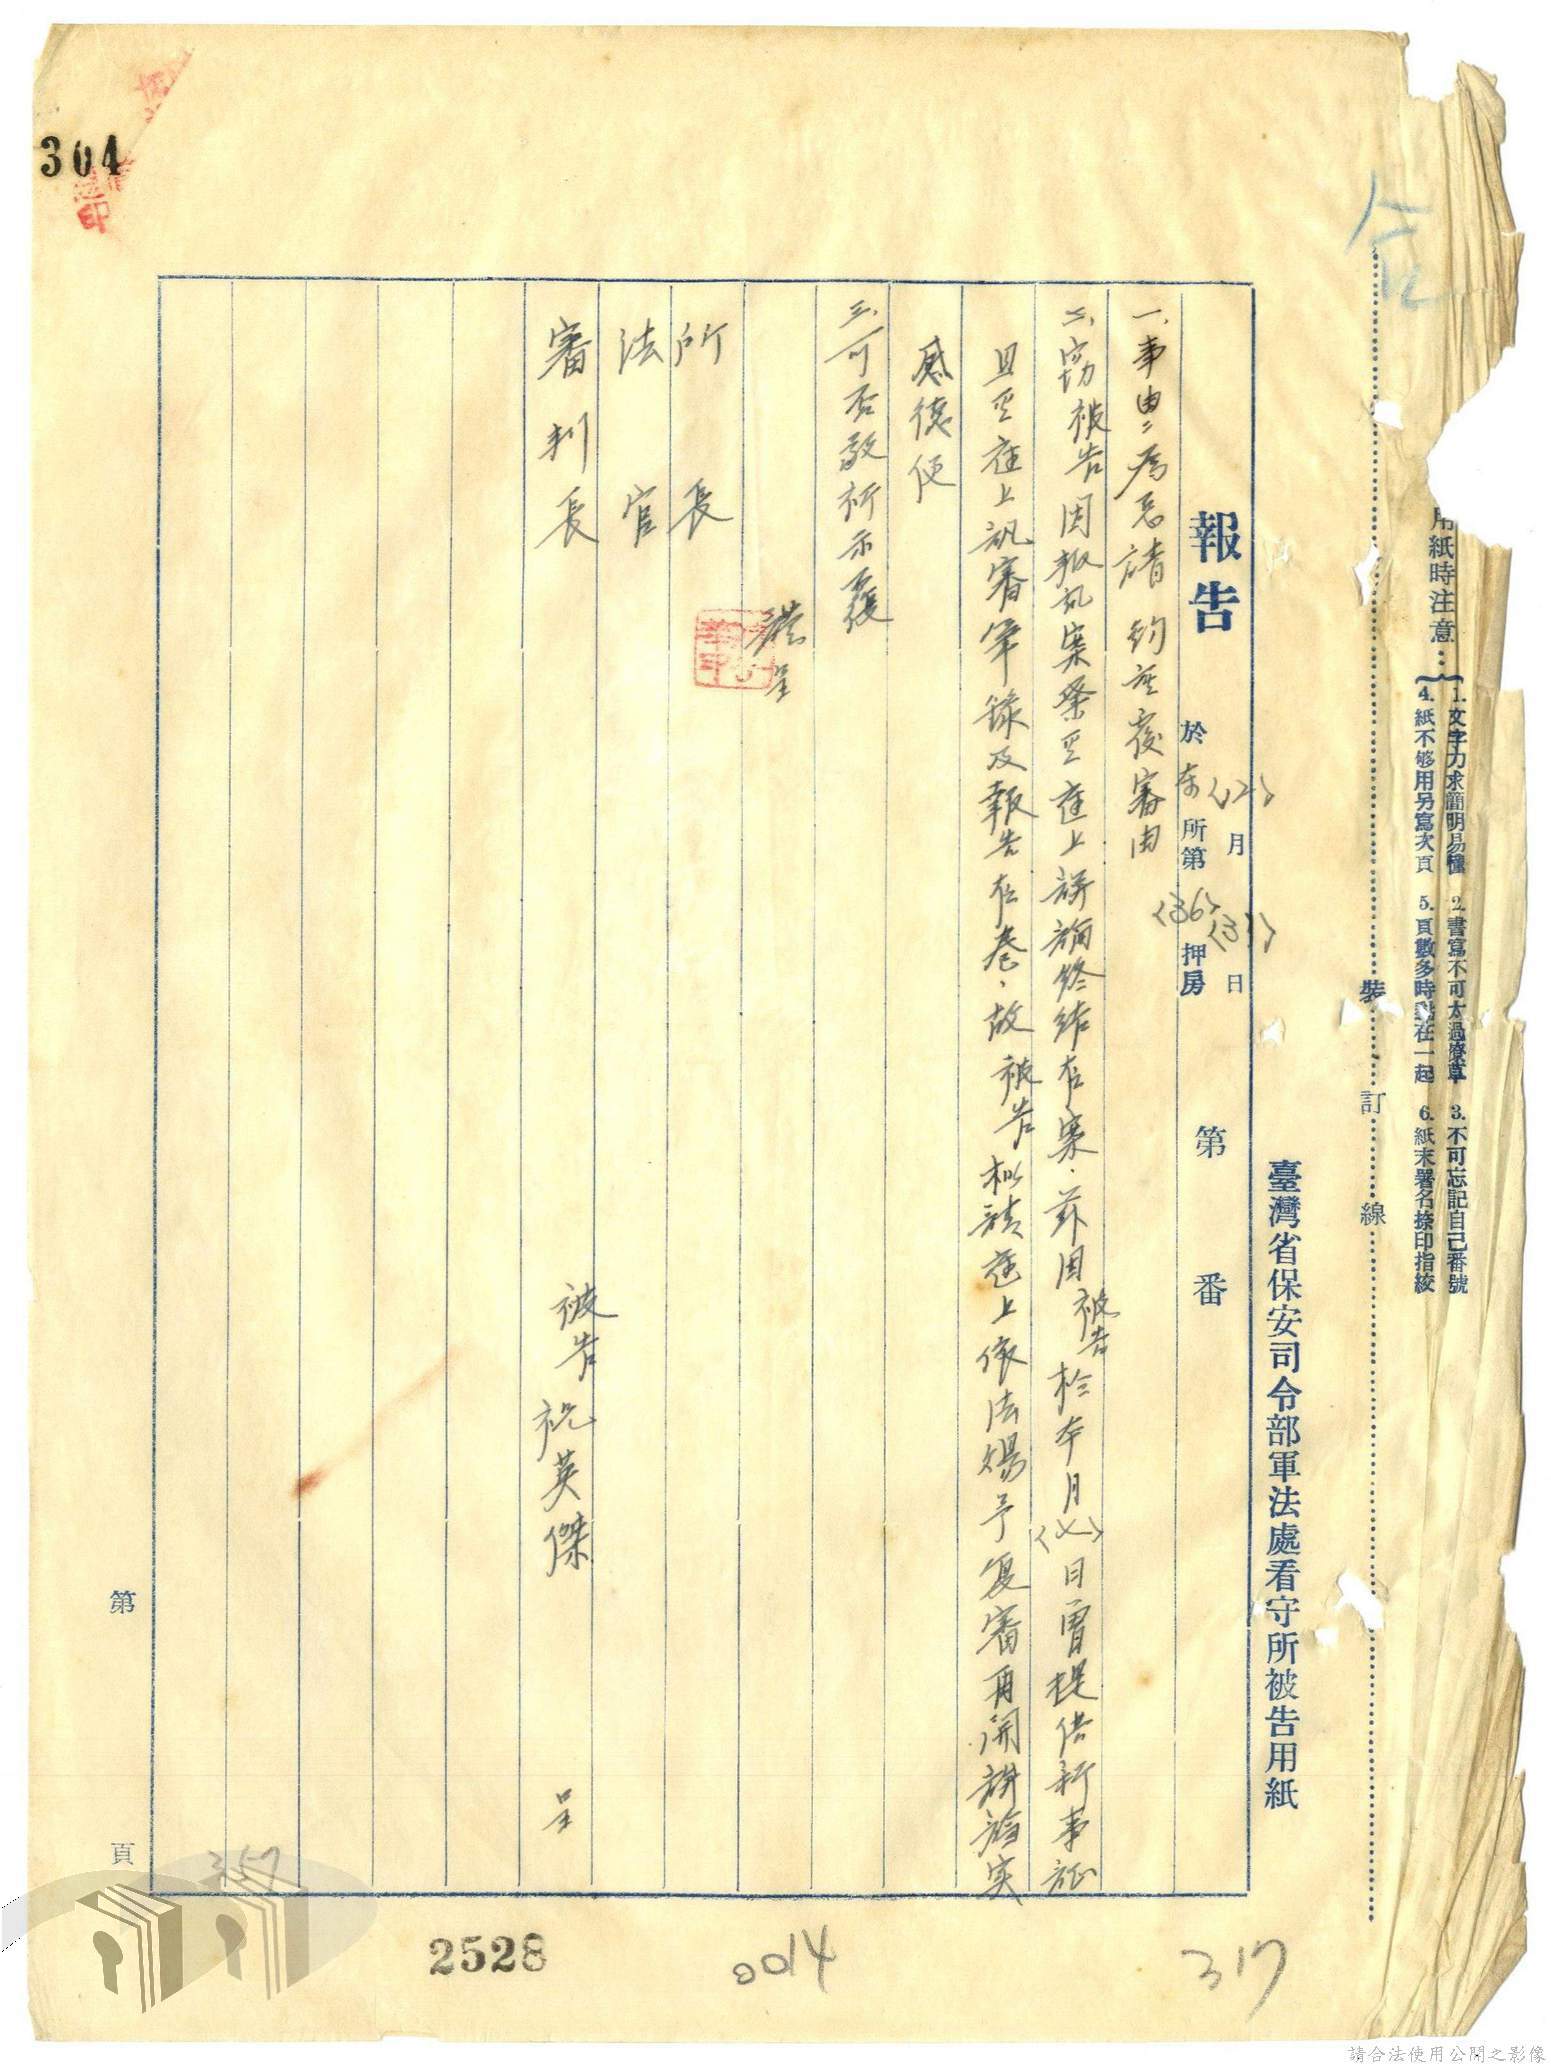 用紙時注意…
1. 文字力求簡明易懂 2. 書寫不可太過潦草 3. 不可忘記自己番號
4. 紙不够用另寫次頁 5. 頁數多時訂在一起 6. 紙末署名捺印指紋
裝 訂 線
臺灣省保安司令部軍法處看守所被告用紙
〈12〉月〈31〉日
報告 於本所第〈36〉押房 第 番
一、事由：為懇請 鈞座覆審由
二、竊被告因叛乱案蒙 庭上辯論終結在案，茲因被告於本月〈七〉日曾提供新事証
且 庭上訊審筆錄及報告在卷，故被告 庭上依法賜予复審再開辯論实
感德便
三、可否敬祈示覆
謹呈
所 長
法 官
審判長
被告 祝英傑 呈
第 頁
304
357
2528
0014
317
請合法使用公開之影像